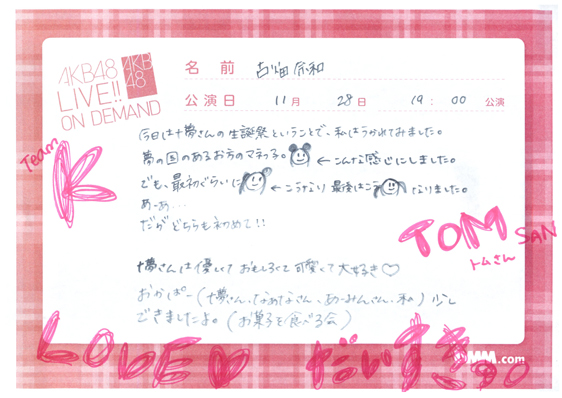 AKB48
LIVE!!
ON DEMAND
AKB
48
名 前 古畑奈和
公演日 11月 28日 19:00 公演
Team
K
今日は十夢さんの生誕祭ということで、私はうかれてみました。
夢の国のあるお方のマネっ子。 ←こんな感じにしました。
でも、最初ぐらいに ←こうなり 最後はこう なりました。
あーあ…
だがどちらも初めて!!
TOM SAN
トムさん
十夢さんは優しくておもしろくて可愛くて大好き♡
おかぱー(十夢さん、なぁなさん、あーみんさん、私)少し
できましたよ。(お菓子を食べる会)
LOVE♡ だいすき
DMM.com